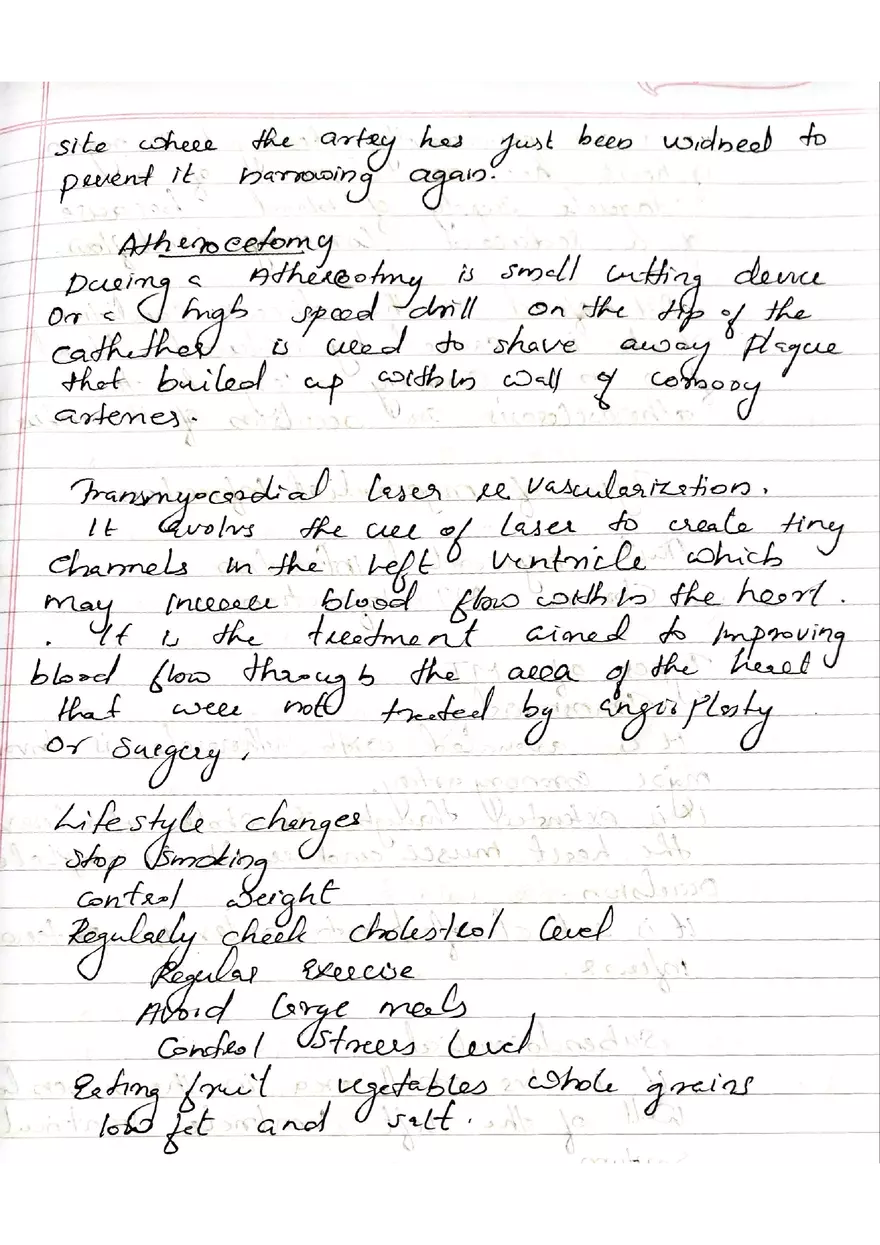 site where the artey has just been widned to
pevent it narrowing again.
Atherocetomy
During a Athereotmy is small cutting device
Or a high speed drill on the tip of the
Cathether is used to shave away plague
that builed up within wall of coronory
arteries.
Transmyocardial laser re vascularization.
It evolvs the use of laser to create tiny
Channels in the Left ventricle which
may increase blood flow within the heart.
. It is the treetment aimed to Improving
blood flow through the area of the heart
that were not treeted by angioplasty
Or Surgery.
Lifestyle changes
Stop Smoking
Control weight
Regularly check cholestrol level
Regular Exercise
Avoid large meals
Control Strees Level
Eating fruit vegetables whole grains
low fet and salt.